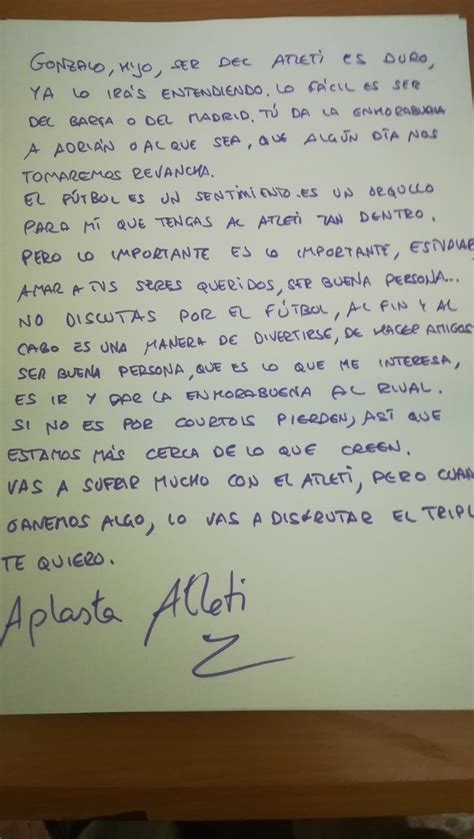 GONZALO, HIJO, SER DEL ATLETI ES DURO,
YA LO IRÁS ENTENDIENDO. LO FÁCIL ES SER
DEL BARÇA O DEL MADRID. TÚ DA LA ENHORABUENA
A ADRIÁN O AL QUE SEA, QUE ALGÚN DÍA NOS
TOMAREMOS REVANCHA.
EL FÚTBOL ES UN SENTIMIENTO. ES UN ORGULLO
PARA MÍ QUE TENGAS AL ATLETI TAN DENTRO.
PERO LO IMPORTANTE ES LO IMPORTANTE, ESTUDIAR
AMAR A TUS SERES QUERIDOS, SER BUENA PERSONA...
NO DISCUTAS POR EL FÚTBOL, AL FIN Y AL
CABO ES UNA MANERA DE DIVERTIRSE, DE HACER AMIGOS
SER BUENA PERSONA, QUE ES LO QUE ME INTERESA,
ES IR Y DAR LA ENHORABUENA AL RIVAL.
SI NO ES POR COURTOIS PIERDEN, ASÍ QUE
ESTAMOS MÁS CERCA DE LO QUE CREEN.
VAS A SUFRIR MUCHO CON EL ATLETI, PERO CUAN
GANEMOS ALGO, LO VAS A DISFRUTAR EL TRIPL
TE QUIERO.
Aplasta Atleti